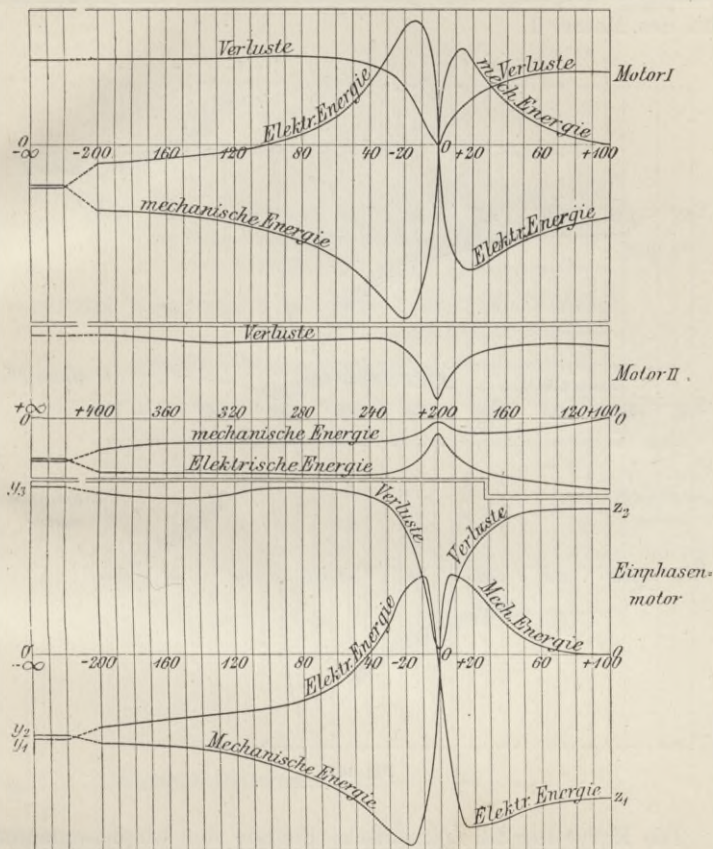 Verluste
Verluste
Motor I
Elektr. Energie
mech. Energie
0
-∞ -200 160 120 80 40 -20 0 +20 60 +100
mechanische Energie
Elektr. Energie
Verluste
Motor II
+∞ +400 360 320 280 240 +200 160 120 +100
0 0
mechanische Energie
Elektrische Energie
y3
Verluste
Verluste
z3
Einphasen=
motor
Elektr. Energie
Mech. Energie
0 0
-∞ -200 160 120 80 40 -20 0 +20 60 +100
y2
y1
Mechanische Energie
Elektr. Energie
z1